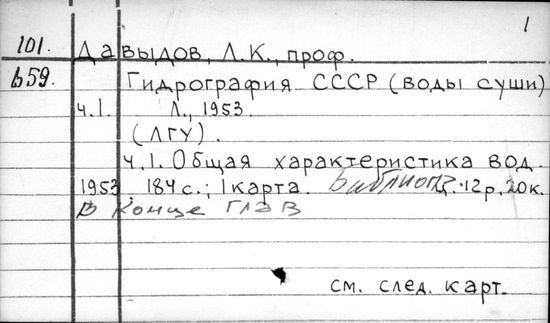 1
101. Давыдов, Л.К., проф.
б59. Гидрография СССР (воды суши)
ч.I. Л., 1953.
(ЛГУ).
ч.1. Общая характеристика вод.
1953 184 с.; 1 карта. Библиогр. Ц. 12р. 20к.
в конце глав
см. след. карт.